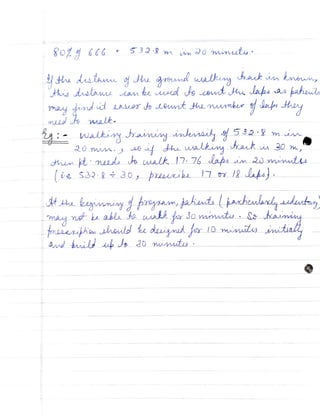 80% of 666 = 532.8 m in 20 minutes.
If the distance of the ground walking track is known,
this distance can be used to count the laps as patients
may find it easier to count the number of laps they
need to walk.
Eg :- walking training intensity of 532.8 m in
20 min., so if the walking track is 30 m,
then pt. needs to walk 17.76 laps in 20 minutes
(ie 532.8 ÷ 30, prescribe 17 or 18 laps).
At the beginning of program, patients (particularly sedentary)
may not be able to walk for 30 minutes. So training
prescription should be designed for 10 minutes initially
and build up to 20 minutes.